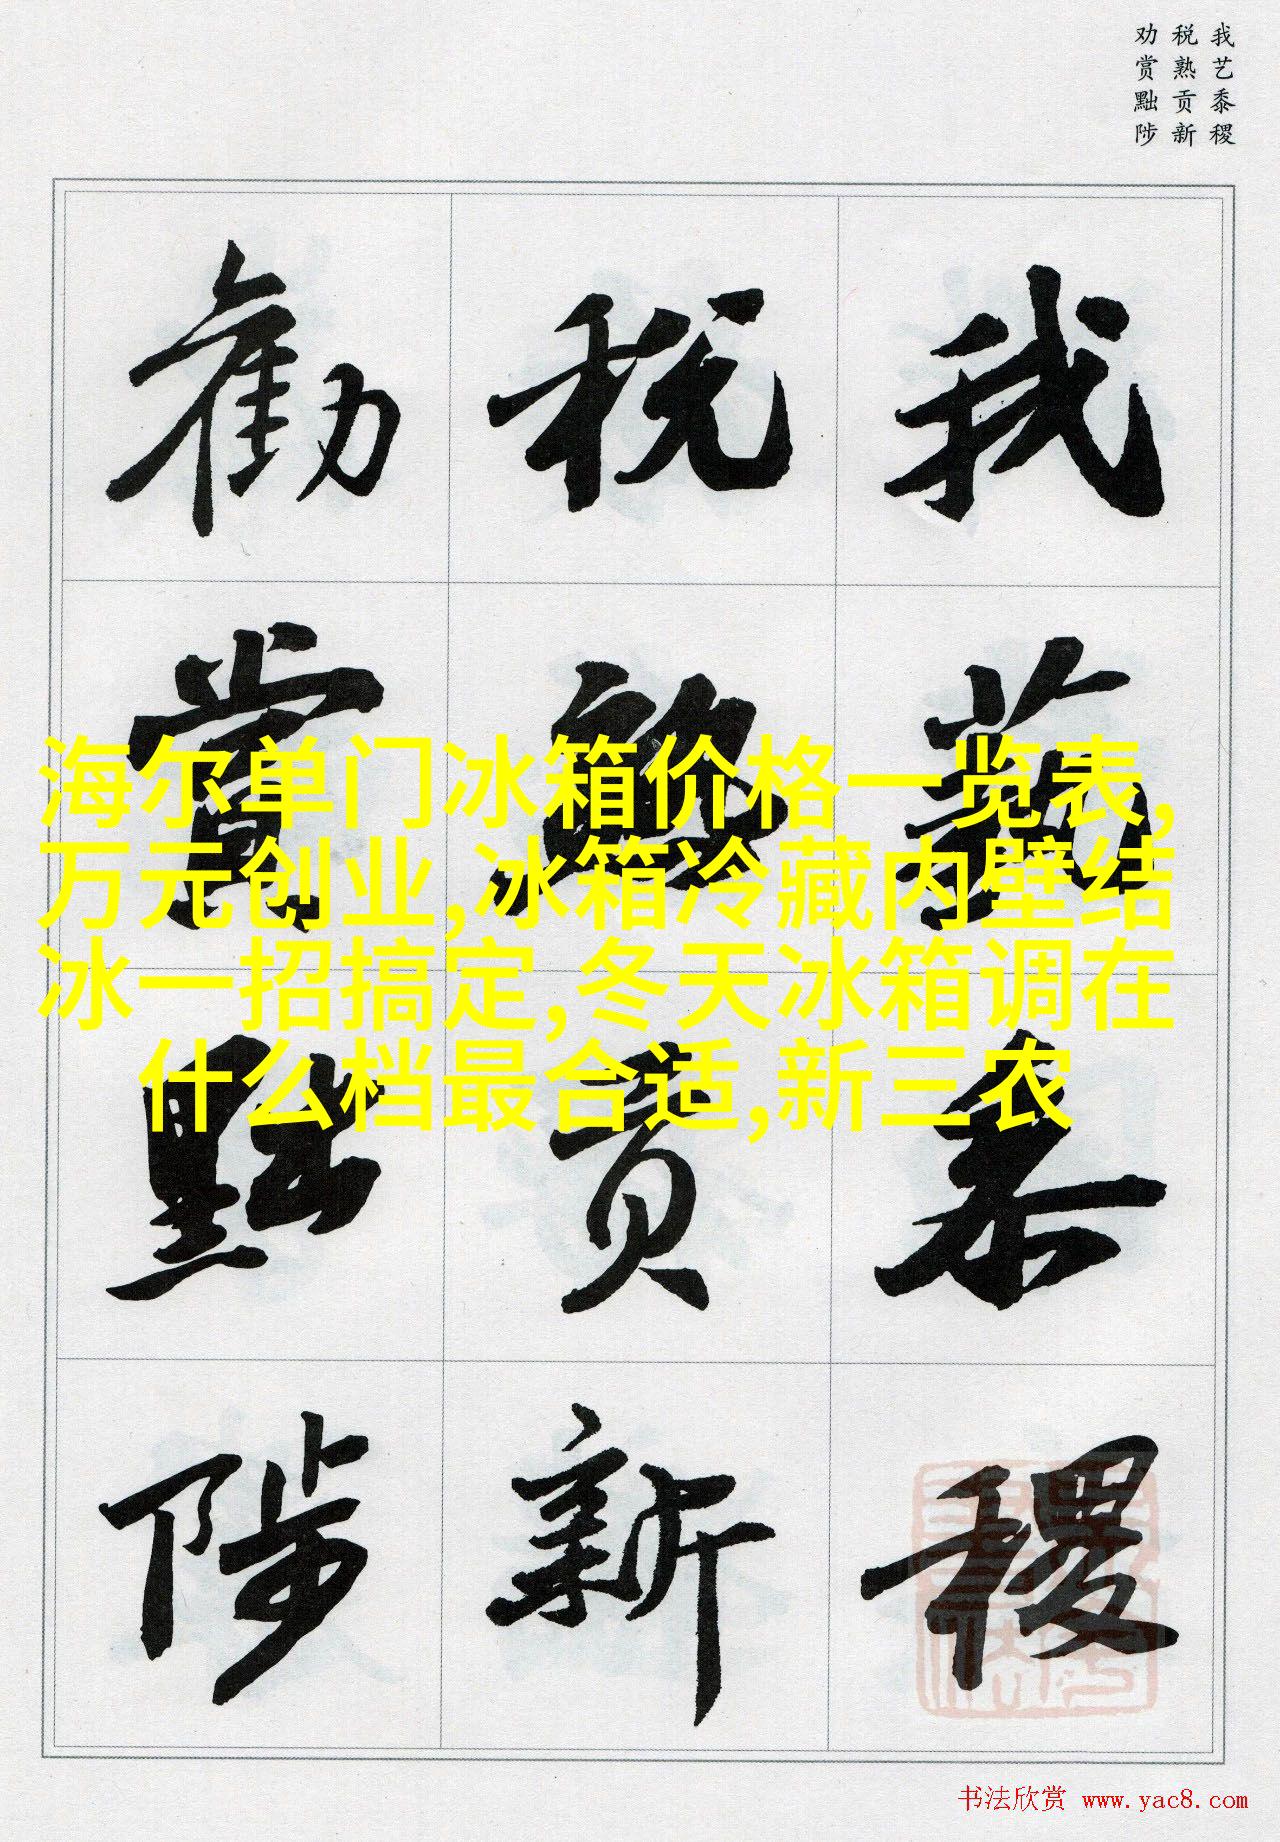 我艺黍稷
税熟贡新
劝赏黜陟
我藝黍稷
税熟貢新
勸賞黜陟
海尔单门冰箱价格一览表,
万元创业,冰箱冷藏内壁结
冰一招搞定,冬天冰箱调在
什么档最合适,新三农
书法欣赏 www.yac8.com